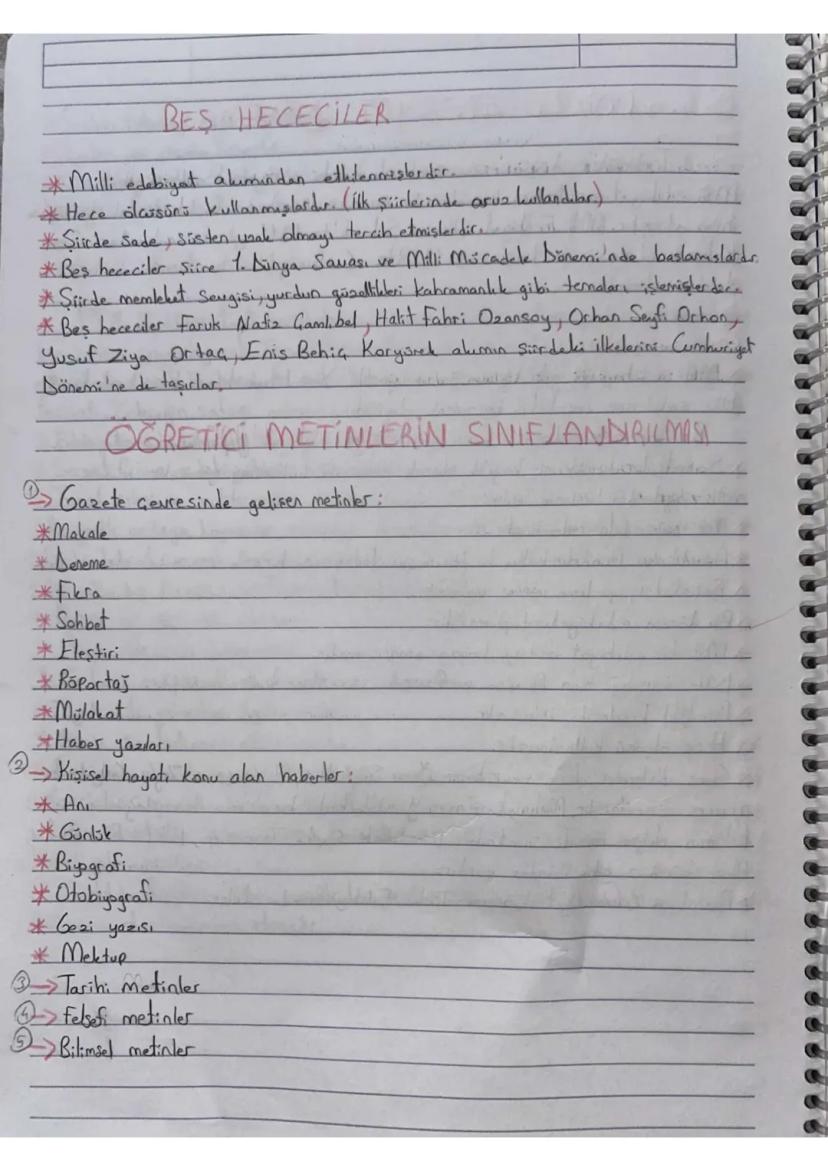 BEŞ HECECİLER
* Milli edebiyat akımından etkilenmişlerdir.
* Hece ölçüsünü kullanmışlardır. (İlk şiirlerinde aruz kullandılar.)
* Şiirde sade, süsten uzak olmayı tercih etmişlerdir.
* Beş hececiler şiire 1. Dünya Savaşı ve Milli Mücadele Dönemi'nde başlamışlardır.
* Şiirde memleket sevgisi, yurdun güzellikleri kahramanlık gibi temaları işlemişlerdir.
* Beş hececiler Faruk Nafiz Çamlıbel, Halit Fahri Ozansoy, Orhan Seyfi Orhon,
Yusuf Ziya Ortaç, Enis Behiç Koryürek akımın şiirdeki ilkelerini Cumhuriyet
Dönemi'ne de taşırlar.
ÖĞRETİCİ METİNLERİN SINIFLANDIRILMASI
① → Gazete çevresinde gelişen metinler:
* Makale
* Deneme
* Fıkra
* Sohbet
* Eleştiri
* Röportaj
* Mülakat
* Haber yazıları
② → Kişisel hayatı konu alan haberler:
* Anı
* Günlük
* Biyografi
* Otobiyografi
* Gezi yazısı
* Mektup
③ → Tarihi metinler
④ → Felsefi metinler
⑤ → Bilimsel metinler